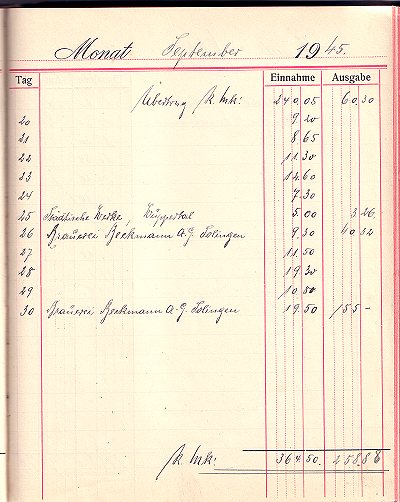 Monat September 1945.
Tag Einnahme Ausgabe
Übertrag R.Mk: 240,05 60,30
20 9,20
21 8,65
22 11,30
23 12,60
24 7,30
25 Städtische Werke, Wuppertal 5,00 3,26
26 Brauerei Beckmann A.G. Solingen 9,30 40,32
27 11,50
28 19,30
29 10,80
30 Brauerei Beckmann A.G. Solingen 19,50 155 –
R.Mk: 364,50. 258,88